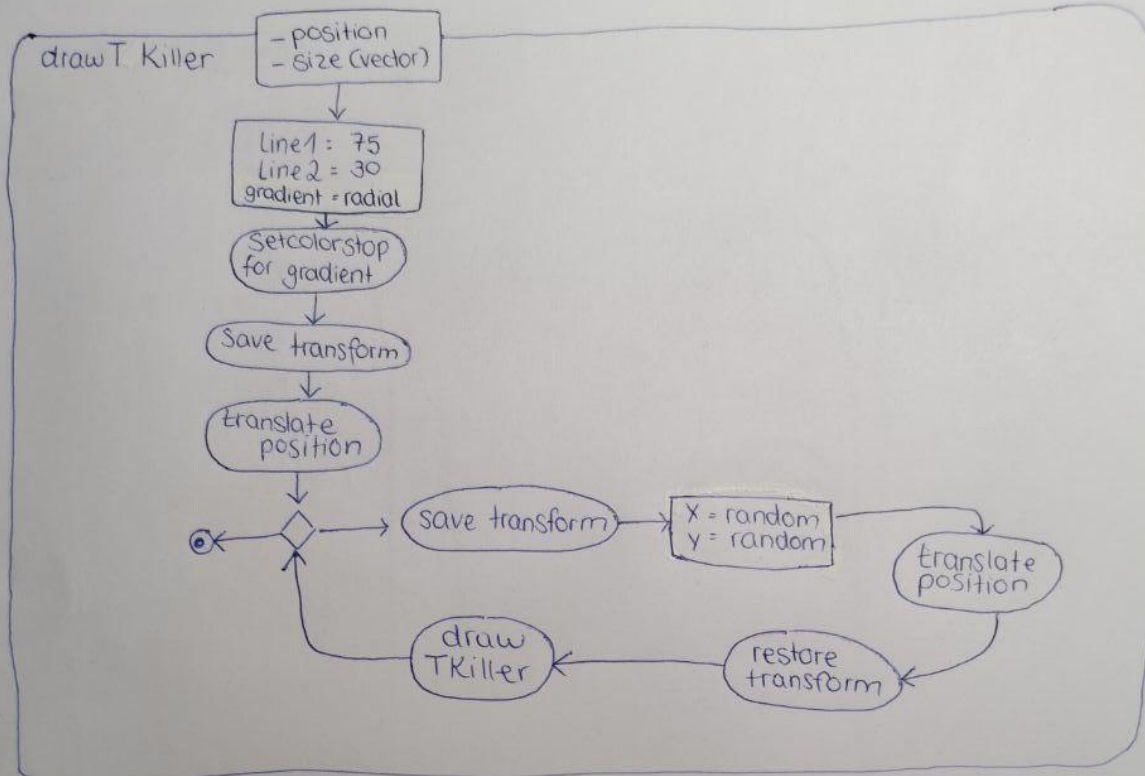 drawT Killer
- position
- size (vector)
Line1 = 75
Line2 = 30
gradient = radial
Setcolorstop
for gradient
save transform
translate
position
save transform
X = random
Y = random
translate
position
restore
transform
draw
TKiller